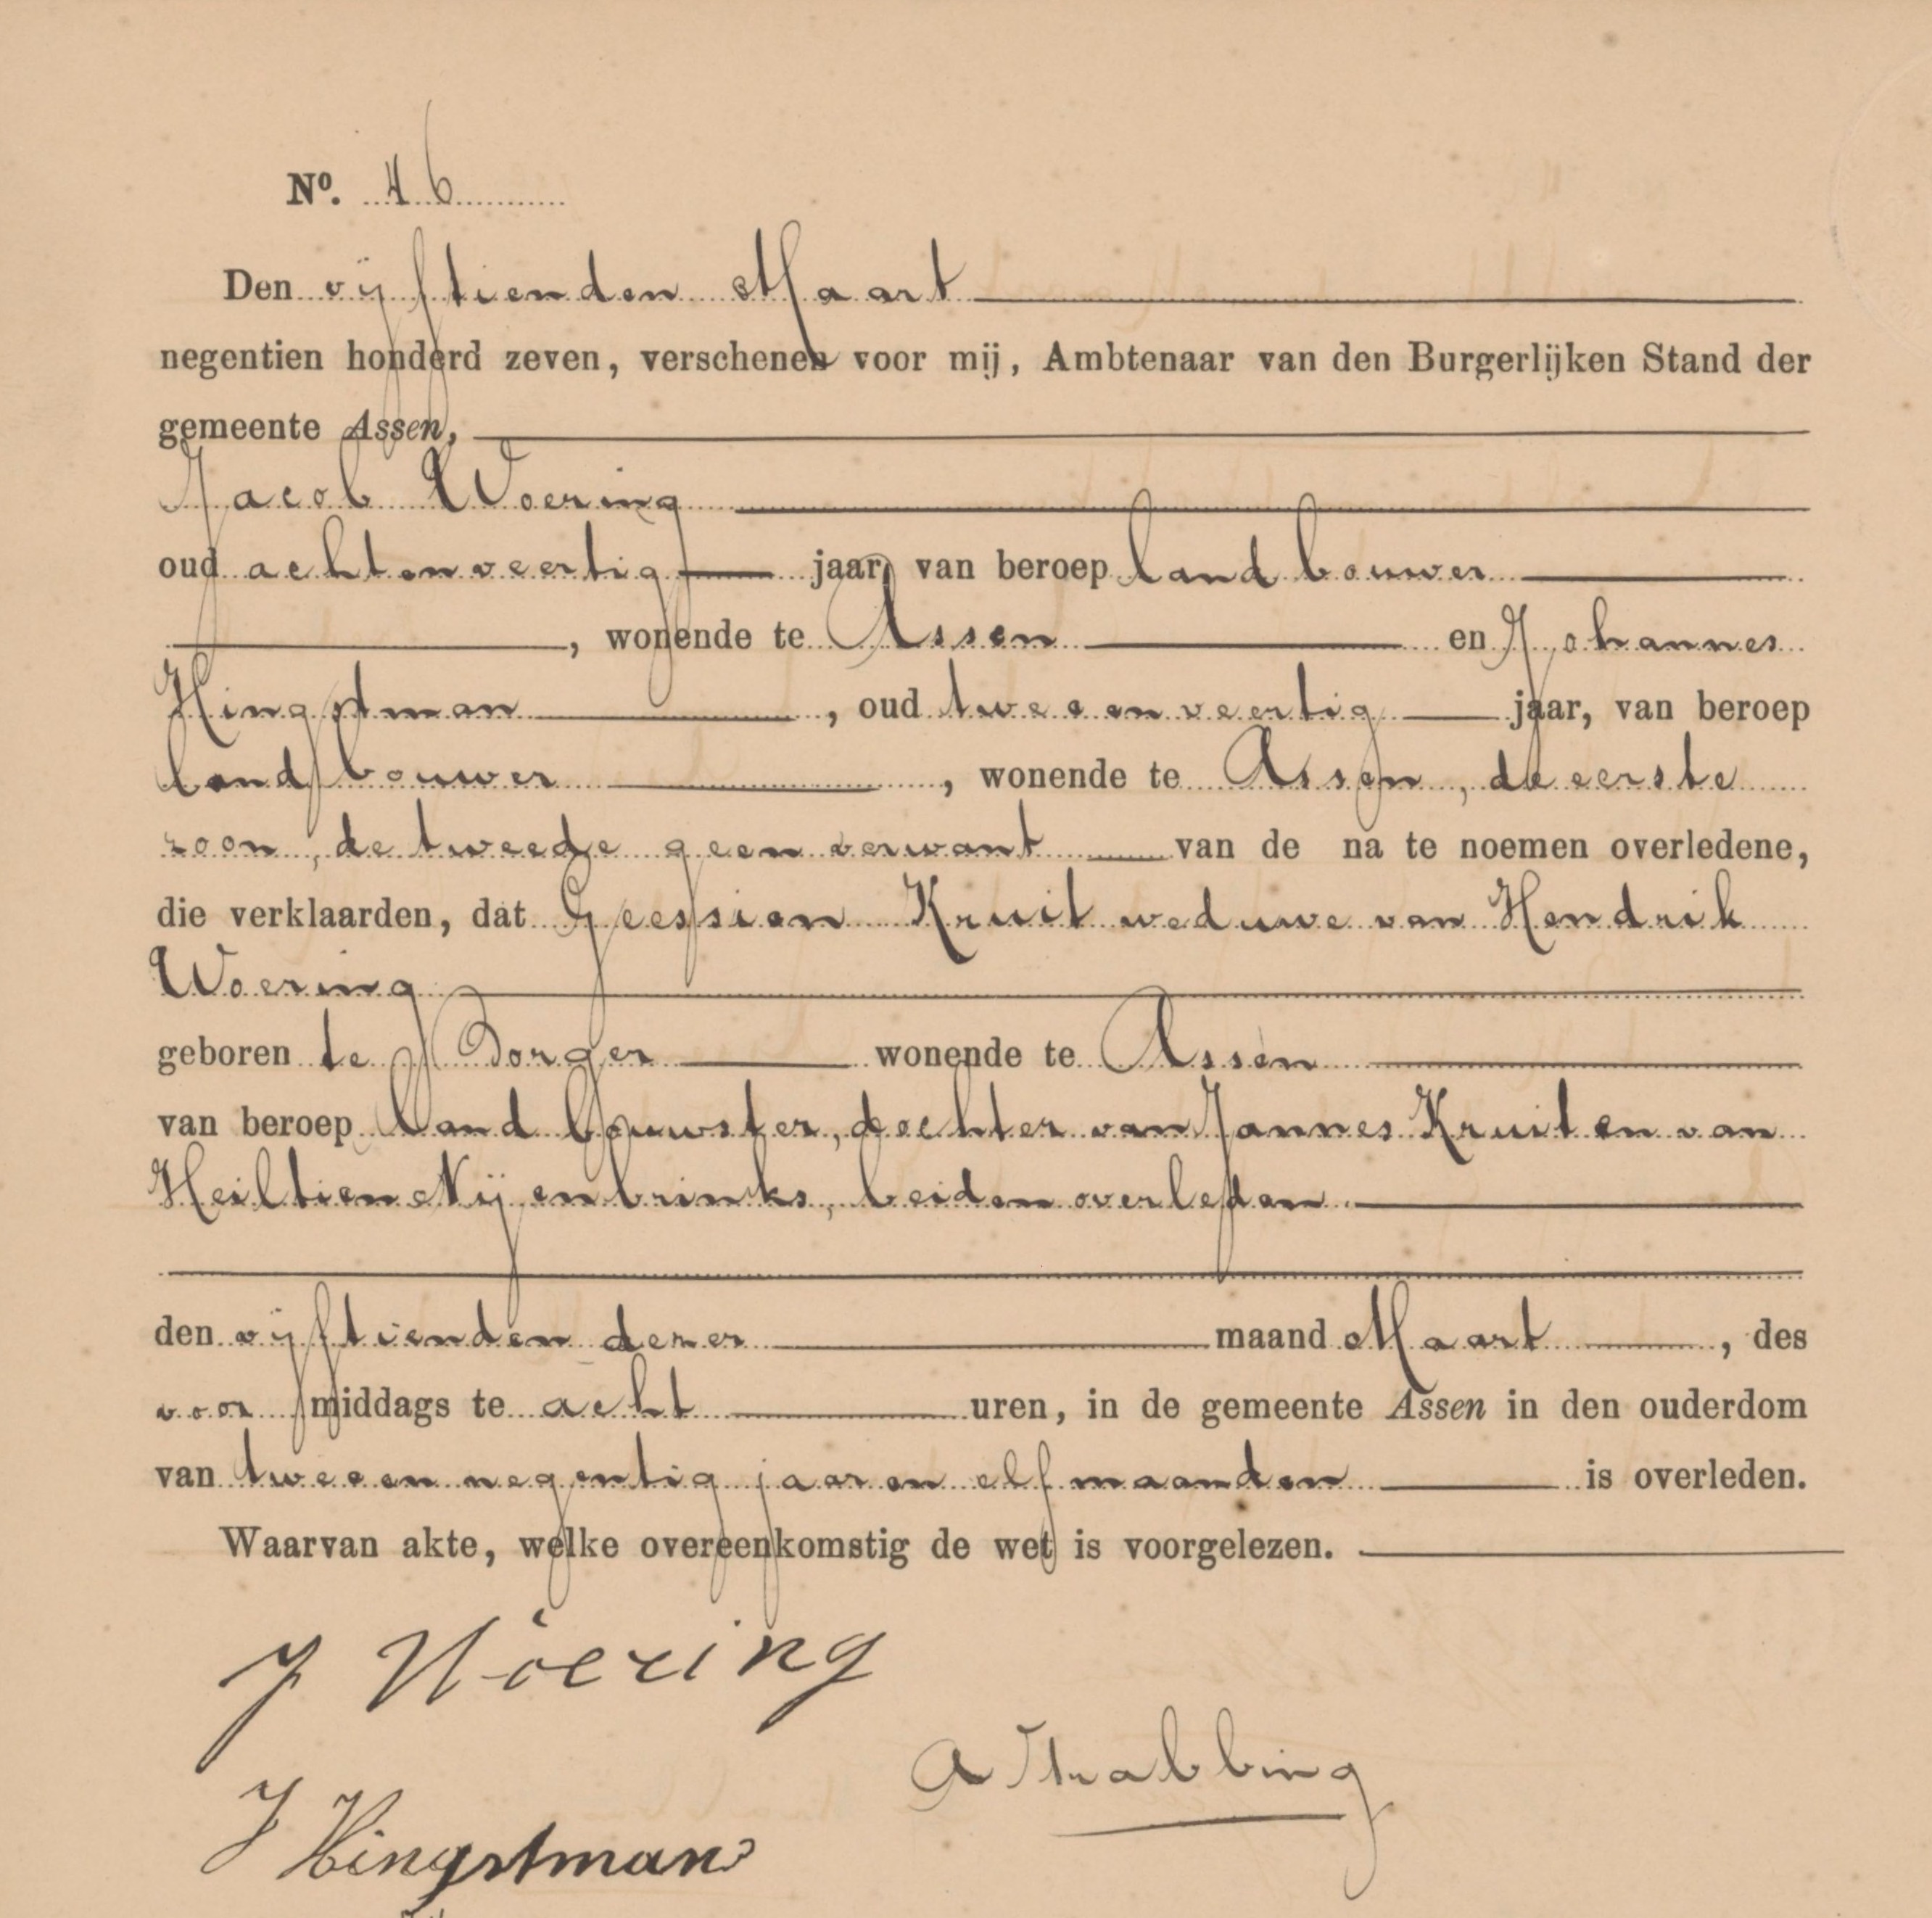 Nº. 46
Den vijftienden Maart
negentien honderd zeven, verschenen voor mij, Ambtenaar van den Burgerlijken Stand der
gemeente Assen,
Jacob Woering
oud achtenveertig jaar, van beroep landbouwer
, wonende te Assen en Johannes
Hingstman, oud tweeenveertig jaar, van beroep
landbouwer, wonende te Assen, de eerste
zoon, de tweede geen verwant van de na te noemen overledene,
die verklaarden, dat Geessien Kruit weduwe van Hendrik
Woering
geboren te Borger wonende te Assen
van beroep landbouwster, dochter van Jannes Kruit en van
Heiltien Nijenbrinks, beiden overleden.
den vijftienden dezer maand Maart, des
voormiddags te acht uren, in de gemeente Assen in den ouderdom
van tweeennegentig jaar en elf maanden is overleden.
Waarvan akte, welke overeenkomstig de wet is voorgelezen.
J Woering
A Strabbing
J Hingstman